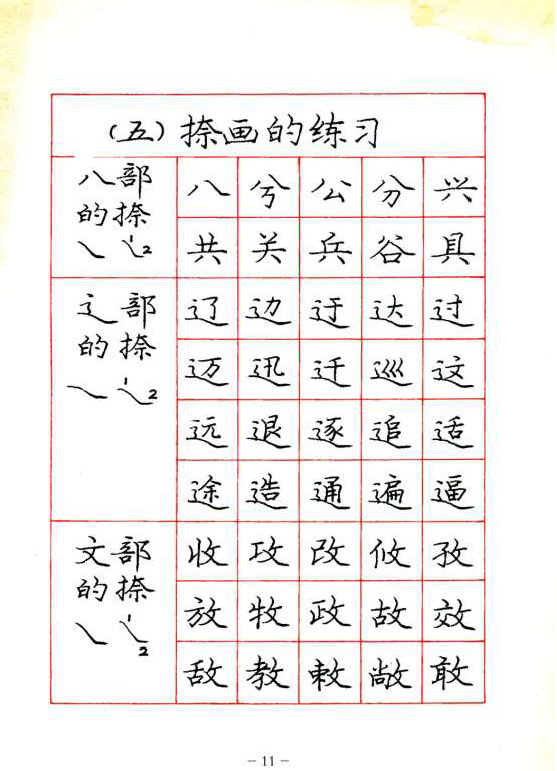 （五）捺画的练习
八部
的捺
1 2
八 兮 公 分 兴
共 关 兵 谷 具
辶部
的捺
1 2
辽 边 迂 达 过
迈 迅 迁 巡 这
远 退 逐 追 适
途 造 通 遍 逼
文部
的捺
1
2
收 攻 改 攸 孜
放 牧 政 故 效
敌 教 敕 敞 敢
- 11 -